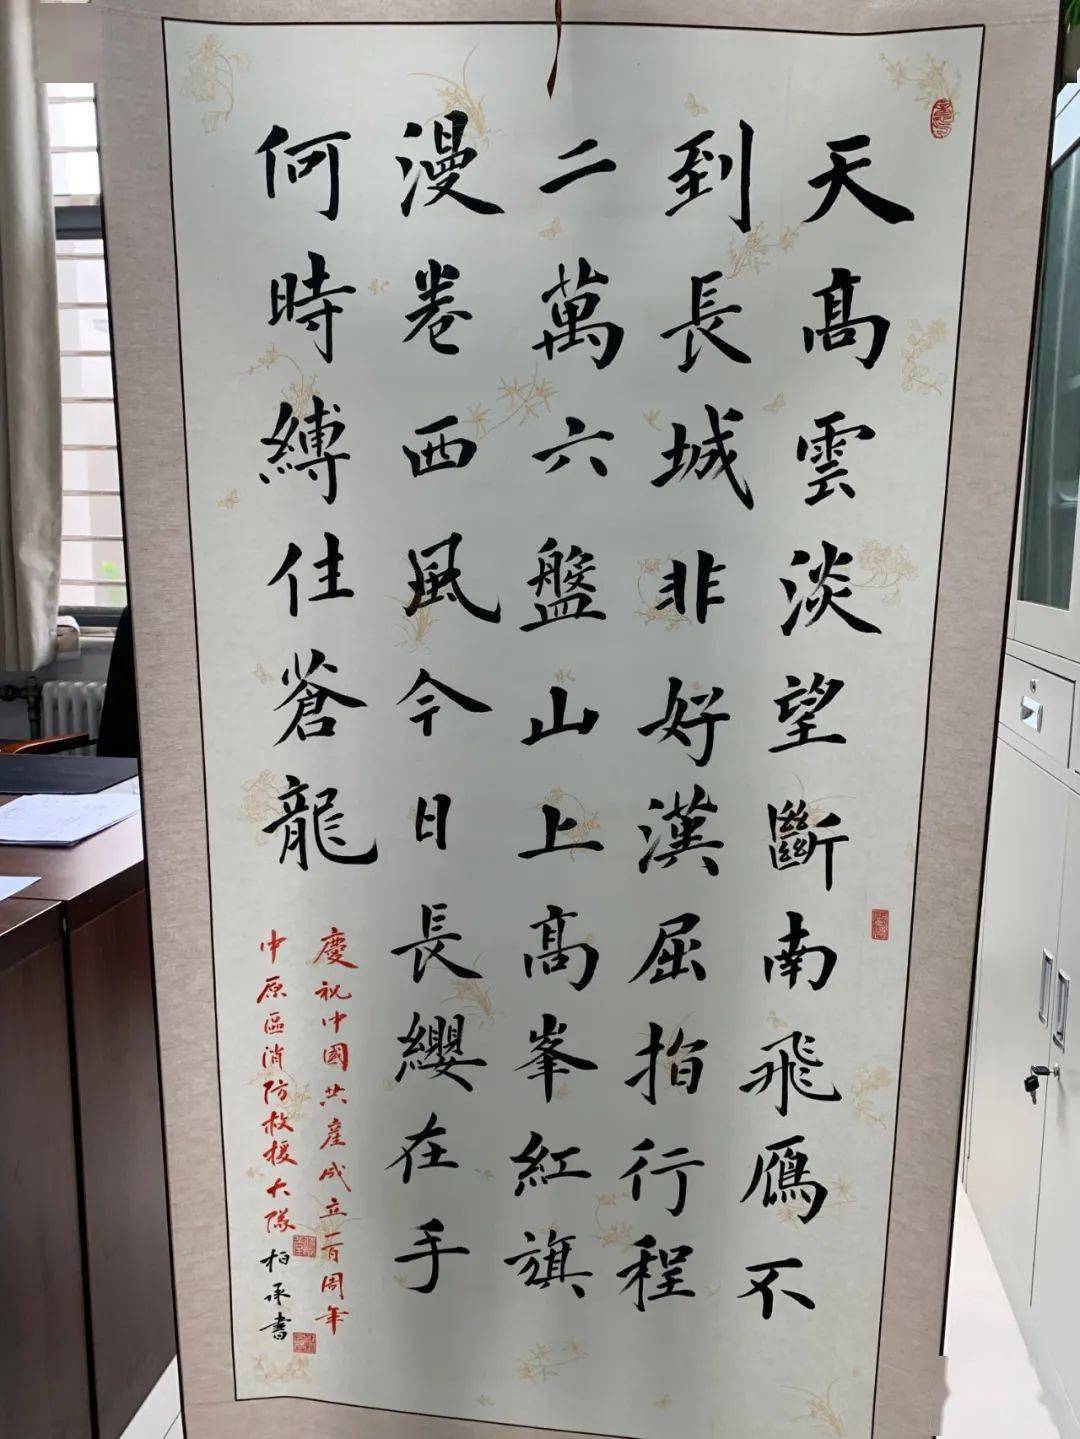 天高雲淡望斷南飛雁不
到長城非好漢屈指行程
二萬六盤山上高峯紅旗
漫卷西風今日長纓在手
何時縛住蒼龍
慶祝中國共產成立一百周年
中原區消防救援大隊
柏承書